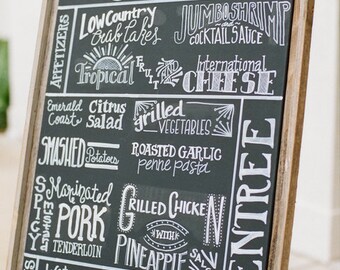 APPETIZERS
Low Country
Crab Cakes
JUMBO SHRIMP
and
COCKTAIL SAUCE
Tropical
FRUIT
International
CHEESE
Emerald
Coast
Citrus
Salad
grilled
VEGETABLES
SMASHED
Potatoes
ROASTED GARLIC
penne pasta
SPICY
MUSTARD
Marinated
PORK
TENDERLOIN
GRILLED CHICKEN
WITH
PINEAPPLE
ENTREE